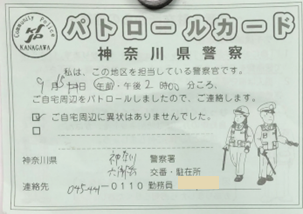 Community Police
KANAGAWA
パトロールカード
神奈川県警察
私は、この地区を担当している警察官です。
9月 日 午前・午後2時00分ころ、
ご自宅周辺をパトロールしましたので、ご連絡します。
☑ ご自宅周辺に異状はありませんでした。
□
神奈川県 神奈川 警察署
交番・駐在所
連絡先 045-441-0110 勤務員